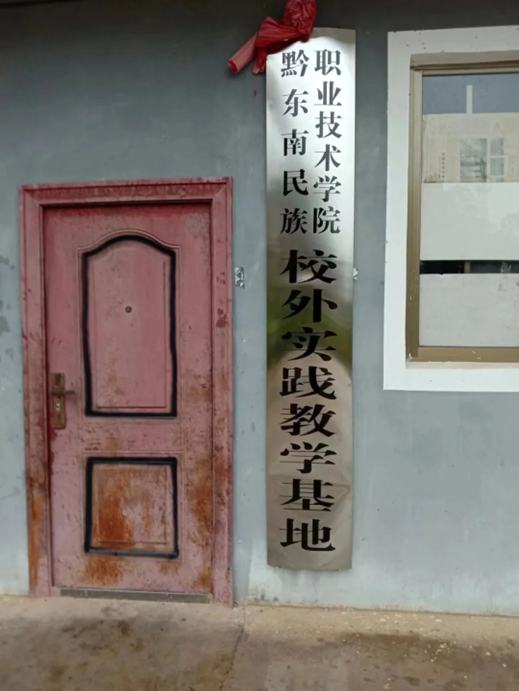 黔东南民族
职业技术学院
校外实践教学基地